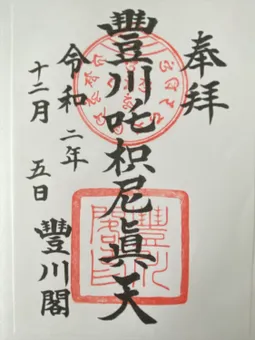 奉拝
豐川吒枳尼眞天
令和二年
十二月 五日
豐川閣